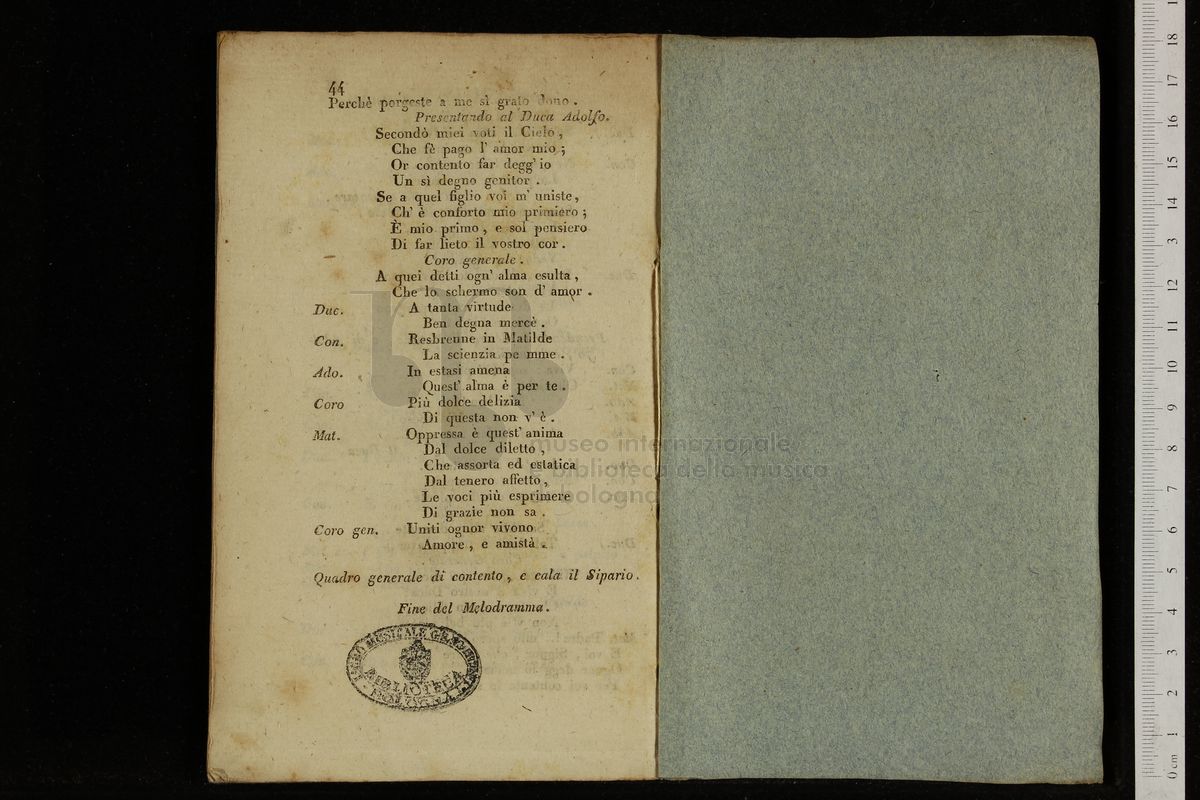 44
Perchè porgeste a me sì grato dono .
Presentando al Duca Adolfo.
Secondò miei voti il Cielo ,
Che fè pago l' amor mio ;
Or contento far degg' io
Un sì degno genitor .
Se a quel figlio voi m' uniste ,
Ch' è conforto mio primiero ;
È mio primo , e sol pensiero
Di far lieto il vostro cor .
Coro generale .
A quei detti ogn' alma esulta ,
Che lo schermo son d' amor .
Duc. A tanta virtude
Ben degna mercè .
Con. in Matilde
La scienzia
Ado. In estasi amena
Quest' alma è per te .
Coro Più dolce delizia
Di questa non v' è .
Mat. Oppressa è quest' anima
Dal dolce diletto ,
Che assorta ed estatica
Dal tenero affetto ,
Le voci più esprimere
Di grazie non sa .
Coro gen. Uniti ognor vivono
Amore , e amistà .
Quadro generale di contento , e cala il Sipario .
Fine del Melodramma .
LICEO MUSICALE
BIBLIOTECA
BOLOGNA
museo internazionale
e biblioteca della musica
bologna
0 cm 1 2 3 4 5 6 7 8 9 10 11 12 3 14 15 16 17 18